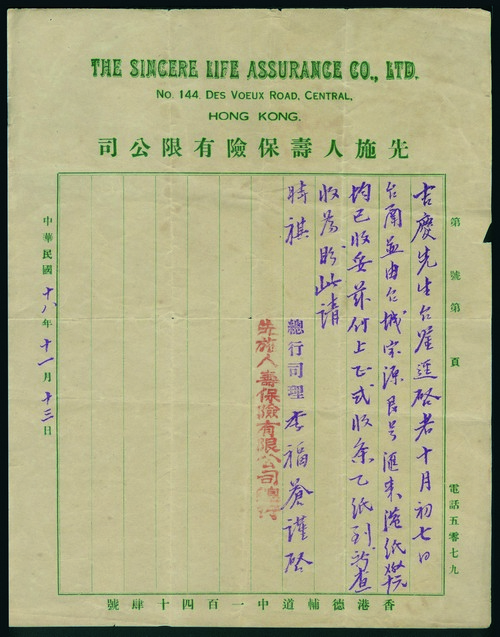 THE SINCERE LIFE ASSURANCE CO., LTD.
No. 144, DES VOEUX ROAD, CENTRAL,
HONG KONG.
司公限有險保壽人施先
第 號 第 頁
電話五零七九
吉慶先生台鑒逕啓者十月初七日
台甬並由仁城宗源昌号滙來港紙
均已收妥茲付上正式收条乙紙到祈查
收為盼此請
時祺
總行司理 李福 謹啓
先施人壽保險有限公司總行
中華民國十八年十一月十三日
號肆十四百一中道輔德港香